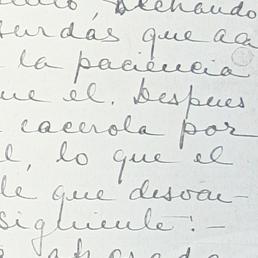 echando
surdas que aca
la paciencia
ue el. Despues
cacerola por
l, lo que el
le que desva-
siguiente: -